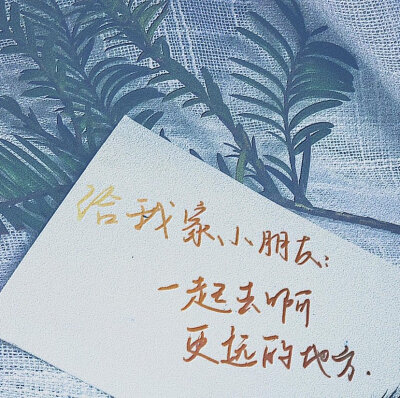 给我家小朋友：
一起去啊
更远的地方.